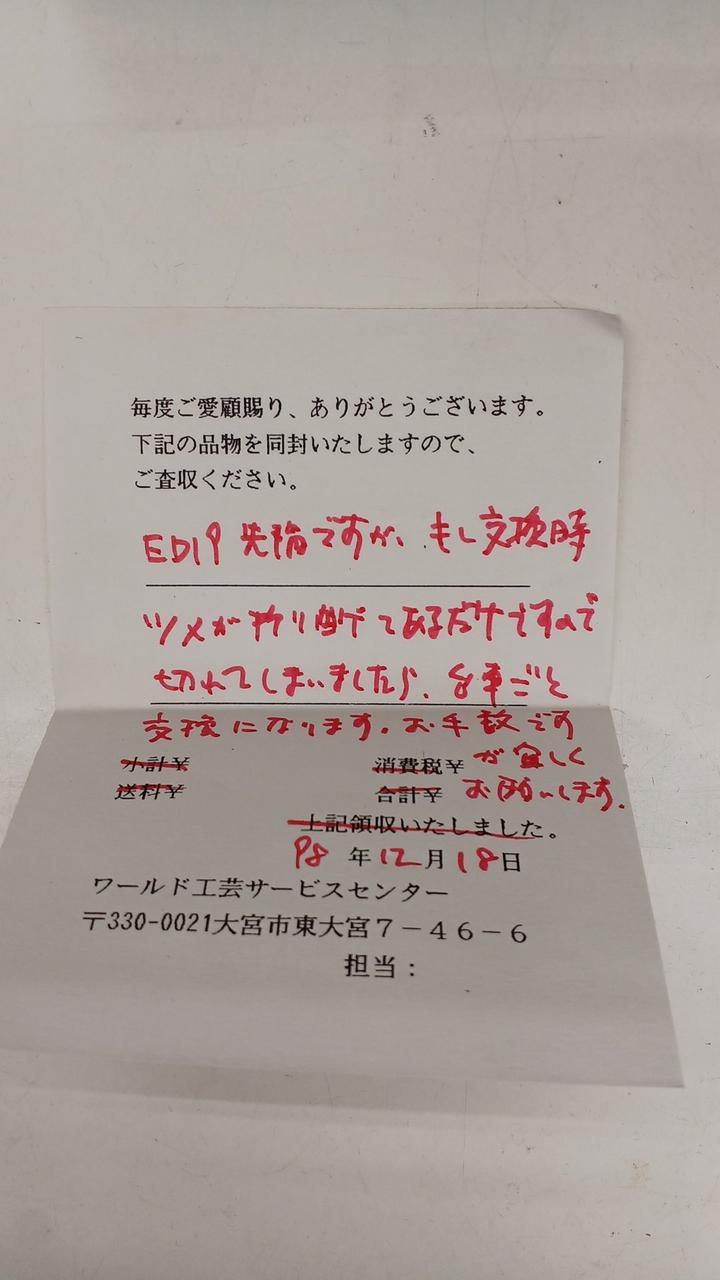 毎度ご愛顧賜り、ありがとうございます。
下記の品物を同封いたしますので、
ご査収ください。
ED19 先輪ですが、もし交換時
ツメが折り曲ゲてあるだけですので
切れてしまいましたら、台車ごと
交換になります。お手数です
が宜しく
お願いします。
小計¥ 消費税¥
送料¥ 合計¥
上記領収いたしました。
98年12月18日
ワールド工芸サービスセンター
〒330-0021大宮市東大宮7-46-6
担当: